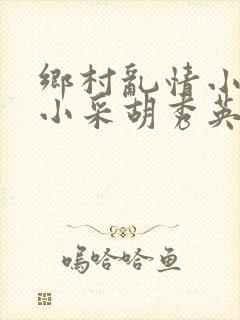 鄉村亂情小
小采胡秀英
嗚哈哈鱼